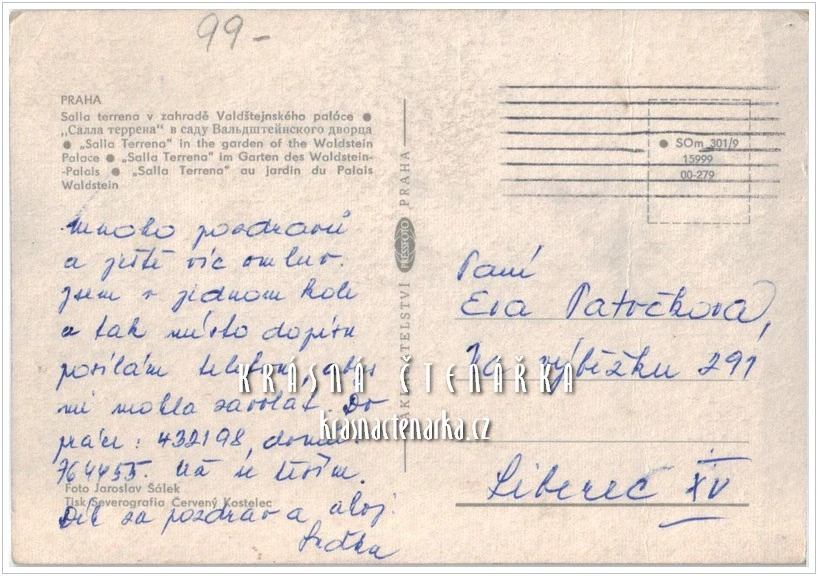 99-
PRAHA
Salla terrena v zahradě Valdštejnského paláce ●
„Салла террена" в саду Вальдштейнского дворца
● „Salla Terrena" in the garden of the Waldstein
Palace ● „Salla Terrena" im Garten des Waldstein-
-Palais ● „Salla Terrena" au jardin du Palais
Waldstein
mnoho pozdravů
a ještě víc omluv.
Jsem v jednom kole
a tak místo dopisu
posílám telefon, abys
mi mohla zavolat. Do
práce: 432198, domů:
764455. Už se těším.
Foto Jaroslav Šálek
Tisk Severografia Červený Kostelec
Dík za pozdrav a ahoj
PRESSFOTO PRAHA
SOm 301/9
15999
00-279
Paní
Eva Patočková,
Na výběžku 291
Liberec XV
KRÁSNÁ ČTENÁŘKA
krasnactenarka.cz